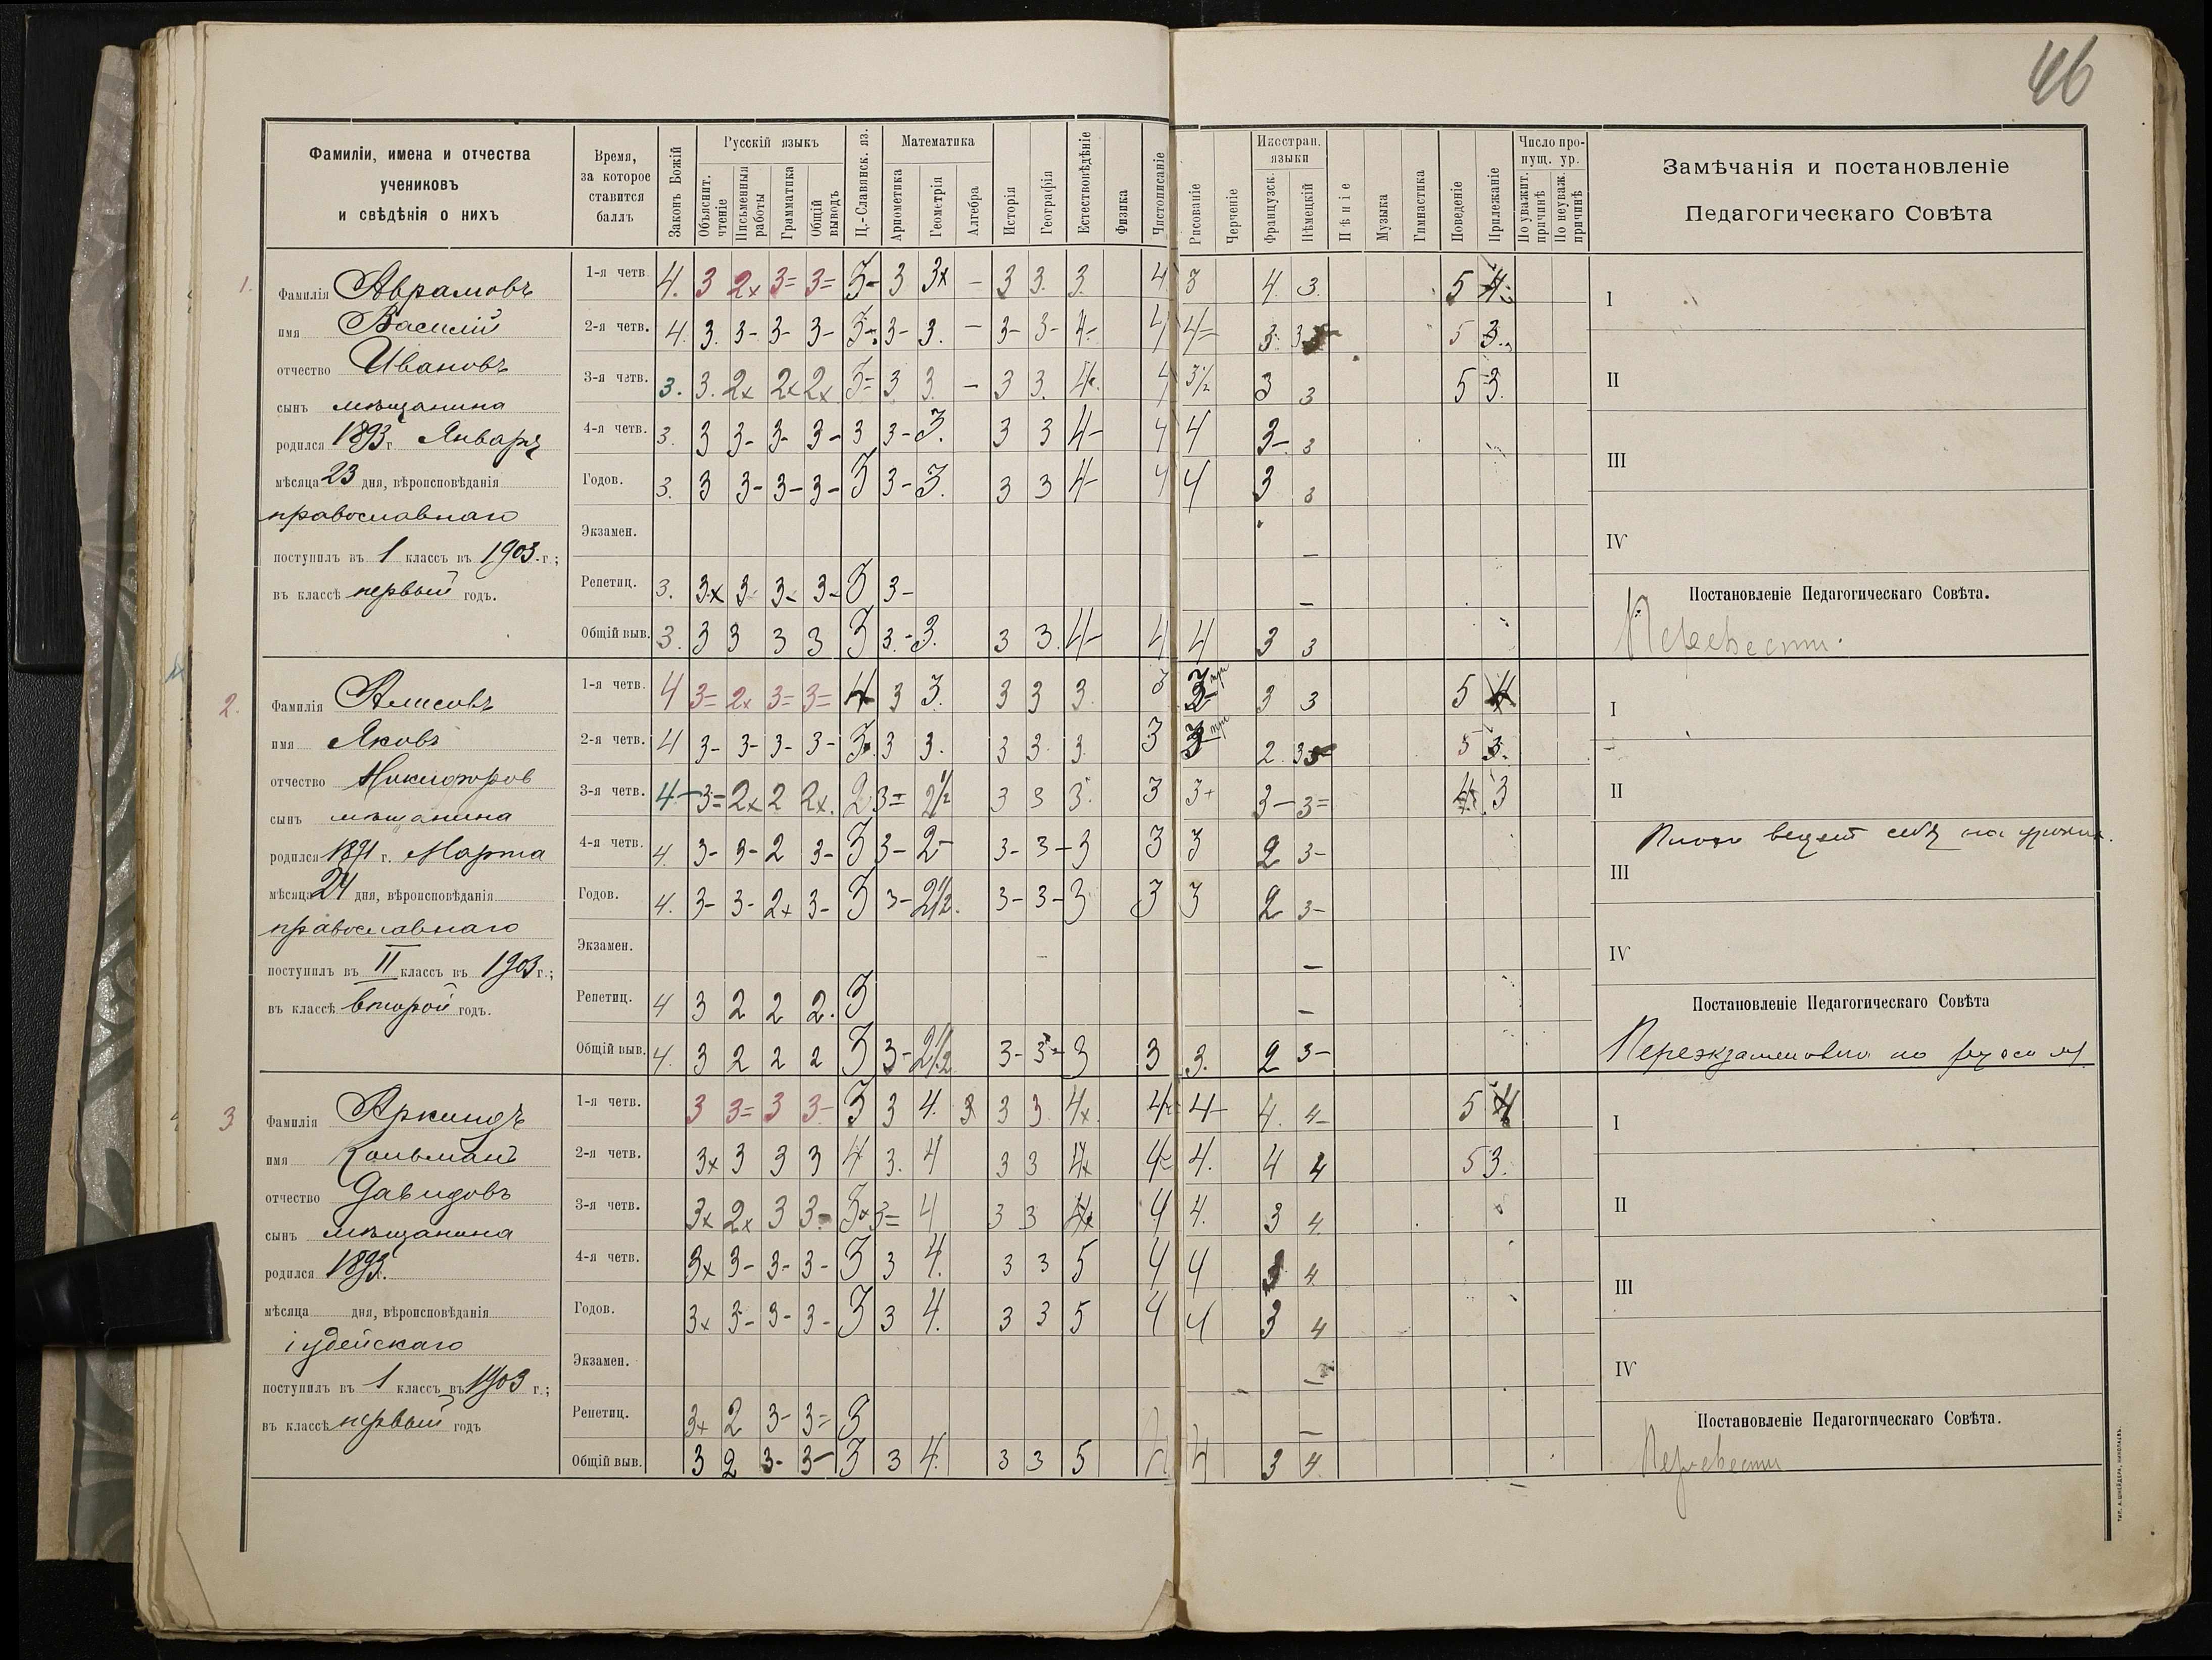 46
Фамиліи, имена и отчества
учениковъ
и свѣдѣнія о нихъ
Время,
за которое
ставится
баллъ
Законъ Божій
Русскій языкъ
Объяснит. чтеніе
Письменныя работы
Грамматика
Общій выводъ
Ц.-Славянск. яз.
Математика
Ариѳметика
Геометрія
Алгебра
Исторія
Географія
Естествовѣдѣніе
Физика
Чистописаніе
Рисованіе
Черченіе
Иностран.
языки
Французск.
Нѣмецкій
Пѣніе
Музыка
Гимнастика
Поведеніе
Прилежаніе
Число про-
пущ. ур.
По уважит. причинѣ
По неуваж. причинѣ
Замѣчанія и постановленіе
Педагогическаго Совѣта
1.
Фамилія Аврамовъ
имя Василій
отчество Ивановъ
сынъ мѣщанина
родился 1893 г. Января
мѣсяца 23 дня, вѣроисповѣданія
православнаго
поступилъ въ 1 классъ въ 1903 г.;
въ классѣ первый годъ.
1-я четв. 4. 3 2x 3= 3= 3- 3 3x - 3 3. 3. 4 3 4. 3. 5 4
2-я четв. 4. 3. 3- 3- 3- 3- 3- 3. - 3- 3- 4- 4 4- 3. 3 5 3.
3-я четв. 3. 3. 2x 2x 2x 3= 3 3. - 3 3. 4 4 3½ 3 3 5 3.
4-я четв. 3. 3 3- 3- 3- 3 3- 3. 3 3 4- 4 4 3- 3
Годов. 3. 3 3- 3- 3- 3 3- 3. 3 3 4- 4 4 3 3
Экзамен.
Репетиц. 3. 3x 3- 3- 3- 3 3-
Общій выв. 3. 3 3 3 3 3 3.- 3. 3 3. 4- 4 4 3 3
I
II
III
IV
Постановленіе Педагогическаго Совѣта.
Перевести.
2.
Фамилія Алисовъ
имя Яковъ
отчество Никифоров
сынъ мѣщанина
родился 1891 г. Марта
мѣсяца 24 дня, вѣроисповѣданія
православнаго
поступилъ въ II классъ въ 1903 г.;
въ классѣ второй годъ.
1-я четв. 4 3= 2x 3= 3= 4 3 3. 3 3 3. 3 3 3 3 5 4
2-я четв. 4 3- 3- 3- 3- 3. 3 3. 3 3. 3. 3 3 2 3 5 3.
3-я четв. 4- 3= 2x 2 2x. 2 3= 2½ 3 3 3. 3 3+ 3- 3= 4 3
4-я четв. 4. 3- 3- 2 3- 3 3- 2- 3- 3- 3 3 3 2 3-
Годов. 4. 3- 3- 2x 3- 3 3- 2½. 3- 3- 3 3 3 2 3-
Экзамен.
Репетиц. 4 3 2 2 2. 3
Общій выв. 4. 3 2 2 2 3 3- 2½ 3- 3- 3 3 3. 2 3-
I
II
ведет себя на
III
IV
Постановленіе Педагогическаго Совѣта
Переэкзаменовка по
3
Фамилія Аркиндъ
имя Кольманъ
отчество Давидовъ
сынъ мѣщанина
родился 1893.
мѣсяца дня, вѣроисповѣданія
іудейскаго
поступилъ въ 1 классъ въ 1903 г.;
въ классѣ первый годъ
1-я четв. 3 3= 3 3- 3 3 4. 3 3 3. 4x. 4- 4- 4. 4- 5 4
2-я четв. 3x 3 3 3 4 3. 4 3 3 4x 4- 4. 4 4 5 3.
3-я четв. 3x 2x 3 3- 3x 3= 4 3 3 4 4 4. 3 4.
4-я четв. 3x 3- 3- 3- 3 3 4. 3 3 5 4 4 3 4.
Годов. 3x 3- 3- 3- 3 3 4. 3 3 5 4 4 3 4
Экзамен.
Репетиц. 3x 2 3- 3= 3
Общій выв. 3 2 3- 3- 3 3 4. 3 3 5 4 4 3 4.
I
II
III
IV
Постановленіе Педагогическаго Совѣта.
Перевести